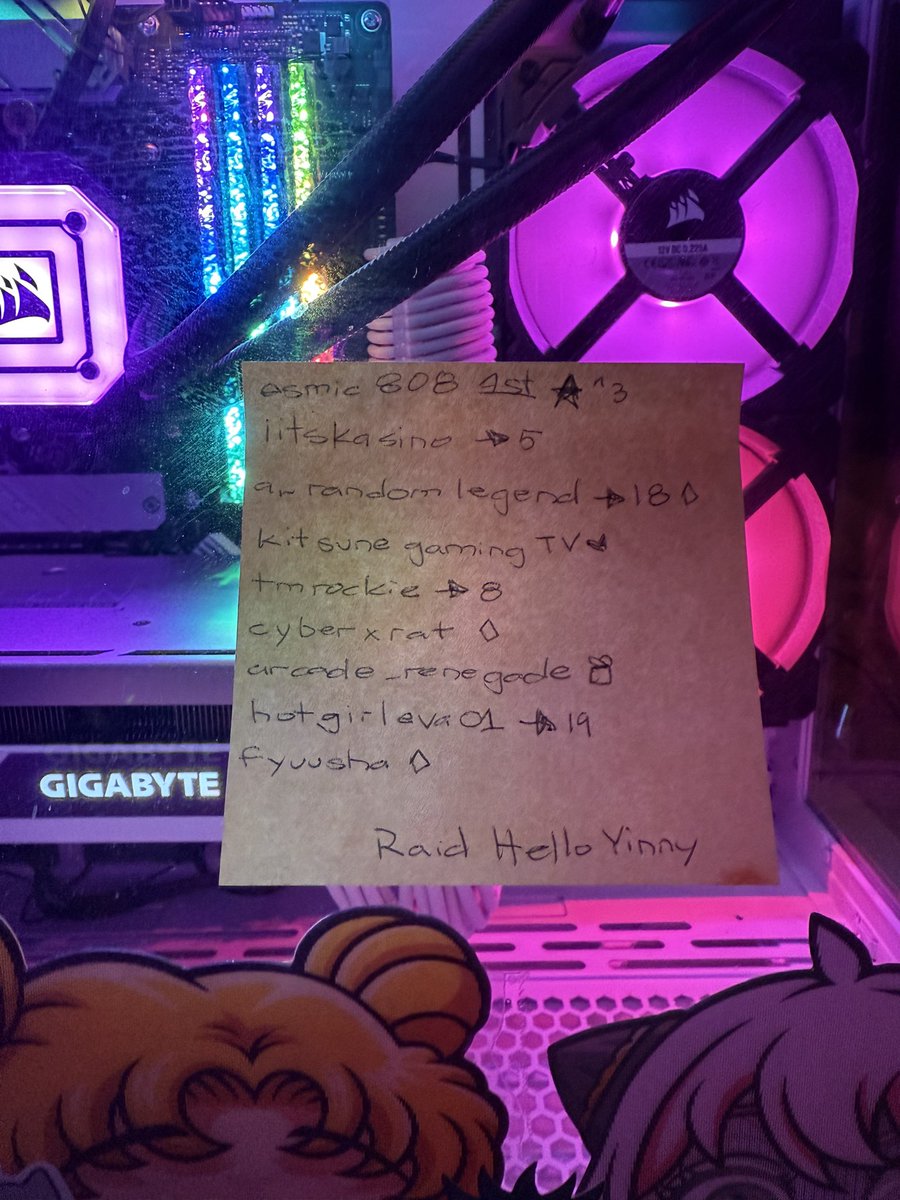 osmic 808 1st ★ ^3
iitskasino → 5
a_randomlegend → 18 ◊
kitsune gaming TV ♥
tmrockie → 8
cyberxrat ◊
arcade_renegade
hotgirleva01 → 19
fyuusha ◊
Raid HelloYinny
GIGABYTE
12V DC 0.225A